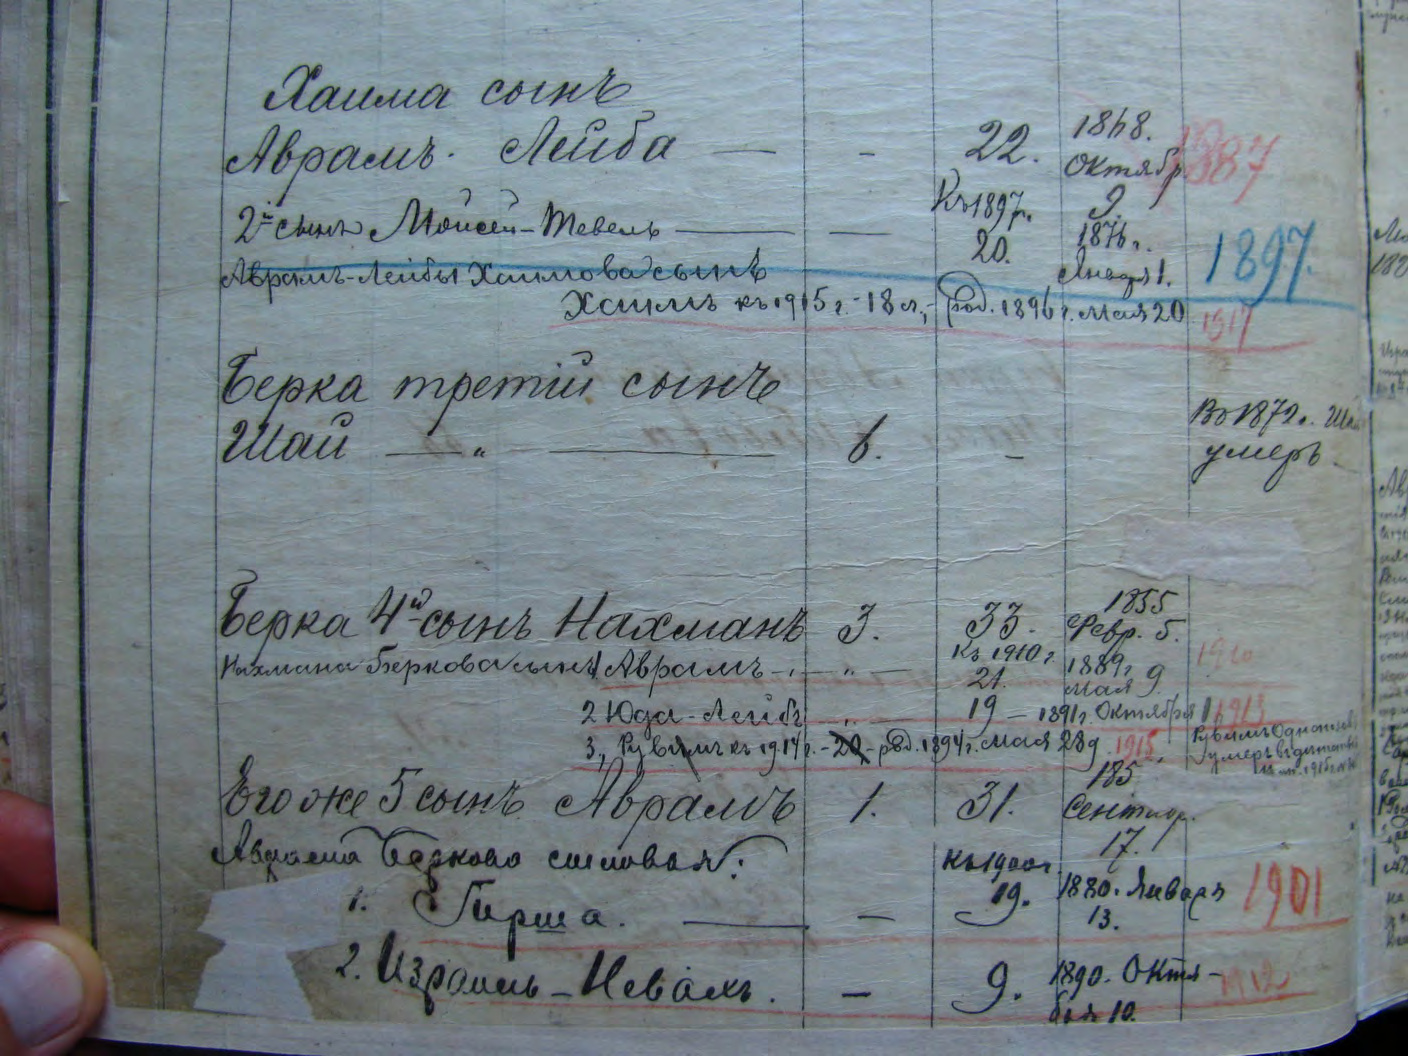 Хаима сынъ
Аврамъ. Лейба — - 22. 1868. Октябр 9 1887
2й сынъ Мойсей-Тевель — — Къ 1897г. 20. 1876г. Января 1. 1897.
Аврамъ-Лейбы Хаимова сынъ
Хаимъ къ 1915г. - 18 л., - род. 1896г. мая 20 1917
Берка третій сынъ
Шай — „ — 6. - Въ 1872г. Шай умеръ
Берка 4й сынъ Нахманъ 3. 33. 1855 Февр. 5.
Нахмана Беркова сынъ 1 Аврамъ - „ — Къ 1910г. 21. 1889г. мая 9. 1910
2 Юда-Лейбъ „ — 19 — 1891г. Октября 1 1913
3, Рувимъ къ 1914г. - 20 - род. 1894г. мая 28 д. 1915. Рувимъ умеръ въ
Его же 5 сынъ Аврамъ 1. 31. 185 Сентяр. 17.
Аврама Беркова сыновья: къ 1900г.
1. Гирша. — — 19. 1880. Января 13. 1901
2. Израиль-Невахъ. — 9. 1890. Октя-бря 10. 1912